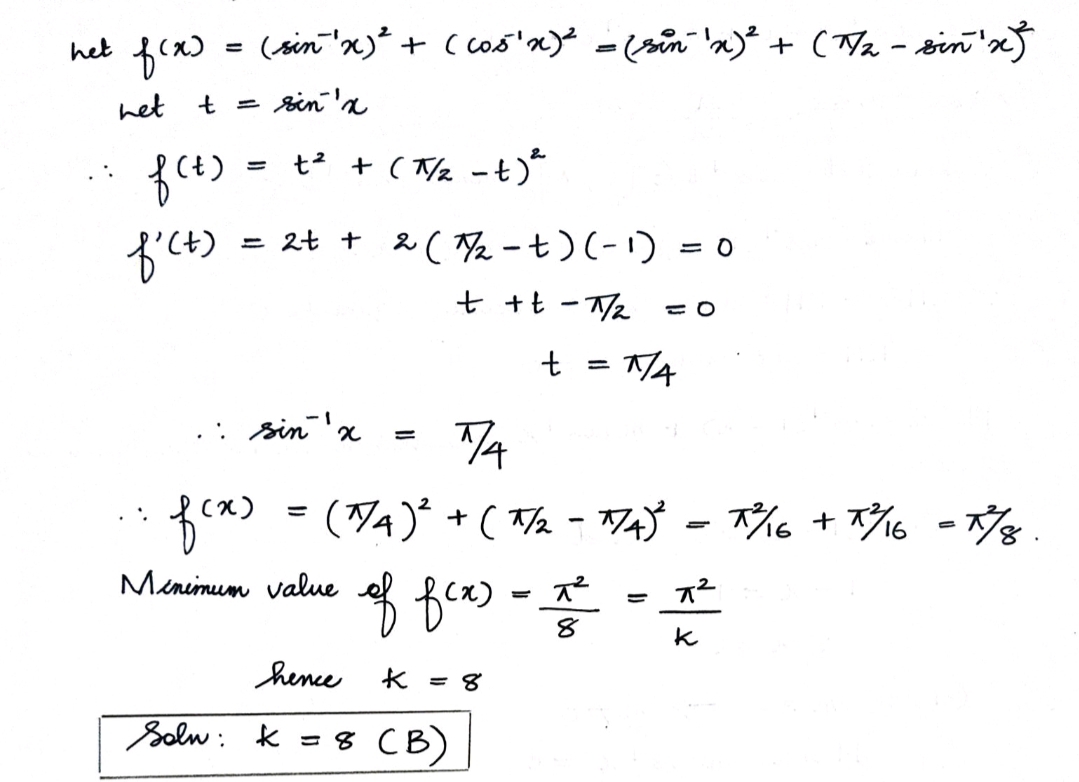 Let f(x) = (sin⁻¹x)² + (cos⁻¹x)² = (sin⁻¹x)² + (π/2 - sin⁻¹x)²
Let t = sin⁻¹x
∴ f(t) = t² + (π/2 - t)²
f'(t) = 2t + 2(π/2 - t)(-1) = 0
t + t - π/2 = 0
t = π/4
∴ sin⁻¹x = π/4
∴ f(x) = (π/4)² + (π/2 - π/4)² = π²/16 + π²/16 = π²/8.
Minimum value of f(x) = π²/8 = π²/k
hence k = 8
Soln: k = 8 (B)